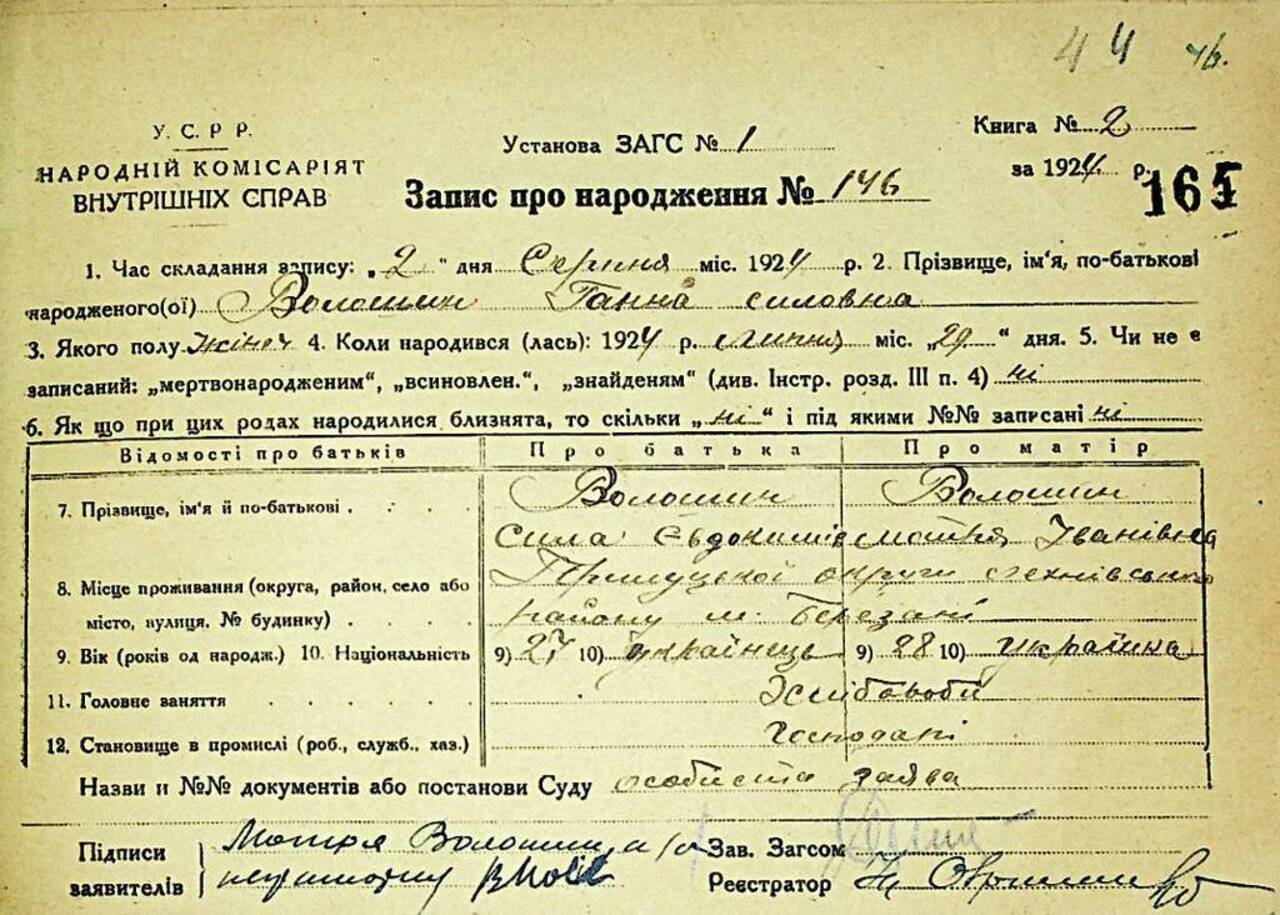 44 46.
У. С. Р Р.
НАРОДНІЙ КОМІСАРІЯТ
ВНУТРІШНІХ СПРАВ
Установа ЗАГС № 1
Запис про народження № 146
Книга № 2
за 1924 р.
165
1. Час складання запису: „2“ дня Серпня міс. 1924 р. 2. Прізвище, ім'я, по-батькові
народженого(ої) Волошин Ганна силовна
3. Якого полу жіноч 4. Коли народився (лась): 1924 р. липня міс. „29“ дня. 5. Чи не є
записаний: „мертвонародженим“, „всиновлен.“, „знайденям“ (див. Інстр. розд. III п. 4) ні
6. Як що при цих родах народилися близнята, то скільки „ні“ і під якими №№ записані ні
Відомості про батьків Про батька Про матір
7. Прізвище, ім'я й по-батькові . . . . Волошин Волошин
Сила Євдокимів мотря Іванівна
8. Місце проживання (округа, район, село або Прилуцької округи
місто, вулиця, № будинку) . . . . району м. Березані
9. Вік (років од народж.) 10. Національність 9) 27 10) українець 9) 28 10) українка
11. Головне заняття . . . . . . Хліборобы
12. Становище в промислі (роб., служб., хаз.) Господарі
Назви и №№ документів або постанови Суду особиста заява
Підписи
заявителів
Мотря Волошин, а за
неграмотну
Зав. Загсом
Реєстратор